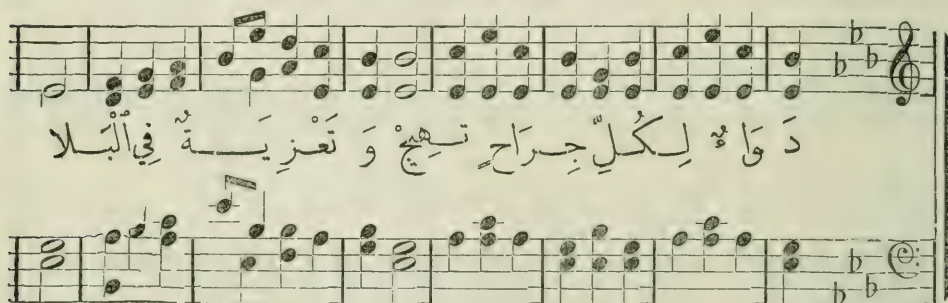 دَوَاءٌ لِكُلِّ جِرَاحٍ تَهِيجْ وَ تَعْزِيَةٌ فِي ٱلْبَلا